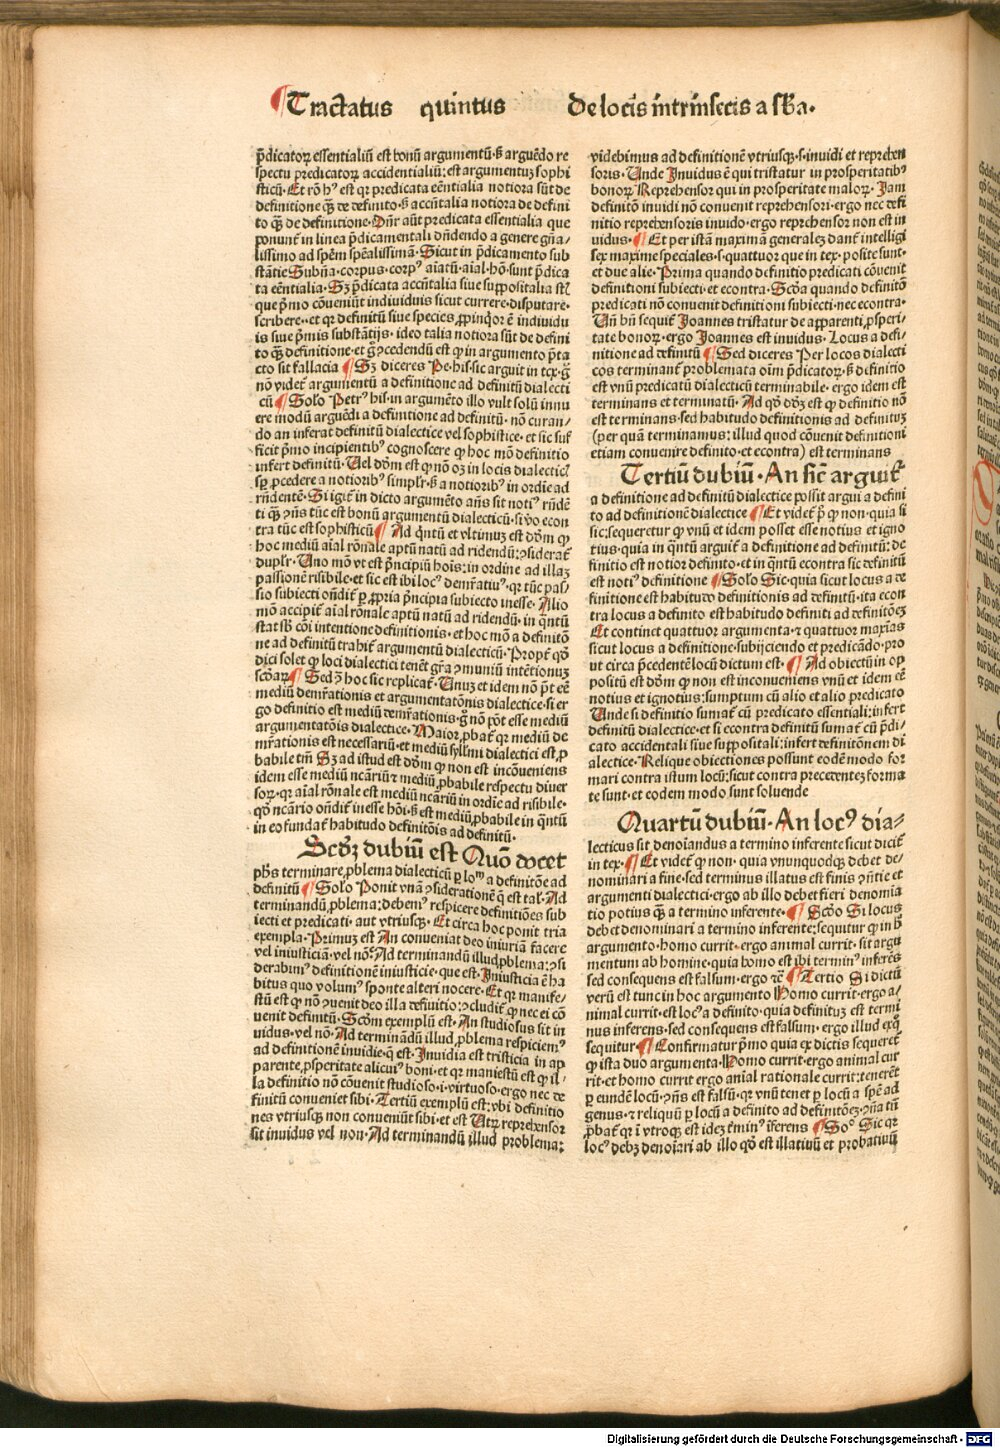 ¶Tractatus quintus De locis intrinsecis a sb̄a.
p̄dicatoꝝ essentialiū est bonū argumentū. s̄ arguēdo re
spectu predicatoꝝ accidentaliū: est argumentuꝫ sophi
sticū. Et rō hꝰ est qꝛ predicata eēntialia notiora sūt de
definitione qꝫ̄ de definito. s̄ accn̄talia notiora de defini
to qꝫ̄ de definitione. Dn̄r aūt predicata essentialia que
ponunt̄ in linea p̄dicamentali dn̄dendo a genere gn̄a/
lissimo ad spēm spēalissimā. Sicut in p̄dicamento sub
stātie Subn̄a. corpus. corpꝰ aīatū. aīal. hō. sunt p̄dica
ta eēntialia. Sꝫ p̄dicata accn̄talia siue suppositalia sūt
que p̄mo cōueniūt indiuiduis sicut currere. disputare.
scribere.. et qꝛ definitū siue species ꝓpinqor ē indiuidu
is siue p̄mis substātijs. ideo talia notiora sūt de defini
to qꝫ̄ definitione. et ꝯcedendū est ꝙ in argumento p̄ta
cto sit fallacia ¶ Sꝫ diceres Pe. his. sic arguit in tex. g̊
nō videt̄ argumentū a definitione ad definitū dialecti
cū ¶ Solo Petrꝰ his. in argumēto illo vult solū innu
ere modū arguēdi a definitione ad definitū. nō curan/
do an inferat definitū dialectice vel sophistice. et sic suf
ficit p̄mo incipientibꝰ cognoscere ꝙ hoc mō definitio
infert definitū. Uel dōm est ꝙ nō oꝫ in locis dialecticꝭ
sp̄ ꝓcedere a notioribꝰ simplr̄. s̄ a notioribꝰ in ordīe ad
rn̄dentē. Si igit̄ in dicto argumēto an̄s sit notiꝰ rn̄dē
ti qꝫ̄ ꝯn̄s tūc est bonū argumentū dialecticū. si v̊o econ
tra tūc est sophisticū ¶ Ad qn̄tū et vltimuꝫ est dōm ꝙ
hoc mediū aīal rōnale aptū natū ad ridendū: ꝯsiderat̄
duplr̄. Uno mō vt est p̄ncipiū hoīs: in ordine ad illaꝫ
passionē risibile. et sic est ibi locꝰ demr̄atiuꝰ. qꝛ tūc pas/
sio subiecti on̄dit̄ ꝑ ꝓpria p̄ncipia subiecto inesse. Alio
mō accipit̄ aīal rōnale aptū natū ad ridendū. in qn̄tū
stat sb̄ cōi intentione definitionis. et hoc mō a definitō
ne ad definitū trahit̄ argumentū dialecticū. Propt̄ qd̊
dici solet ꝙ loci dialectici tenēt gr̄a ꝯmuniū intētionuꝫ
scd̓aꝝ ¶ Sed ꝯ̄ hoc sic replicat̄. Unuꝫ et idem nō pt̄ eē
mediū demr̄ationis et argumentatōnis dialectice. si er
go definitio est mediū demr̄ationis. g̊ nō pōt esse mediū
argumentatōis dialectice. Maior ꝓbat̄ qꝛ mediū de
mr̄ationis est necessariū. et mediū syllī dialectici est ꝓ
babile tm̄ Sꝫ ad istud est dōm ꝙ non est incōueniens
idem esse mediū nc̄ariū ⁊ mediū ꝓbabile respectu diuer
soꝝ. qꝛ aīal rōnale est mediū nc̄ariū in ordīe ad risibile.
qd̊ nc̄ario on̄dit̄ inesse hōi. s̄ est mediū ꝓbabile in qn̄tū
in eo fundat̄ habitudo definitōis ad definitū.
Scd̓ꝫ dubiū est Quō docet
phs̄ terminare ꝓblema dialecticū ꝑ loᵐ a definitōe ad
definitū ¶ Solo Ponit vnā ꝯsiderationē q̄ est tal̄. Ad
terminandū ꝓblema: debemꝰ respicere definitiōes sub
iecti et predicati. aut vtriusqꝫ. Et circa hoc ponit tria
exempla. Primuꝫ est An conueniat deo iniuriā facere
vel iniusticiā. vel nō. Ad terminandū illud ꝓblema: ꝯsi
derabimꝰ definitionē iniusticie. que est. Iniusticia ē ha
bitus quo volumꝰ sponte alteri nocere. Et qꝛ manife/
stū est ꝙ nō ꝯuenit deo illa definitio: ꝯcludit̄ ꝙ nec ei cō
uenit definitū. Scd̓m exemplū est. An studiosus sit in
uidus. vel nō. Ad terminādū illud ꝓblema respiciemꝰ
ad definitionē inuidie. q̄ est. Inuidia est tristicia in ap
parente ꝓsperitate alicuiꝰ boni. et qꝛ maniestū est ꝙ il/
la definitio nō cōuenit studioso. i. virtuoso. ergo nec de
finitū conueniet sibi. Tertiū exemplū est: vbi definitio
nes vtriusqꝫ non conueniūt sibi. et est Utꝝ reprehensor
sit inuidus vel non. Ad terminandū illud problema:
videbimus ad definitionē vtriusqꝫ. s. inuidi et reprehen
soris. Unde Inuidus ē qui tristatur in prosperitatibꝰ
bonoꝝ Reprehensor qui in prosperitate maloꝝ. Iam
definitō inuidi nō conuenit reprehensori. ergo nec defi
nitio reprehensoris inuido. ergo reprehensor non est in
uidus. ¶ Et per istā maximā generaleꝫ dant̄ intelligi
sex maxime speciales. s. quattuor que in tex. posite sunt.
et due alie. Prima quando definitio predicati cōuenit
definitioni subiecti. et econtra. Scd̓a quando definitō
predicati nō conuenit definitioni subiecti. nec econtra.
Un̄ bn̄ sequit̄ Joannes tristatur de apparenti ꝓsperi/
tate bonoꝝ. ergo Joannes est inuidus. Locus a defi/
nitione ad definitū ¶ Sed diceres Per locos dialecti
cos terminant̄ problemata oīm p̄dicatoꝝ. s̄ definitio
est vnū predicatū dialecticū terminabile. ergo idem est
terminans et terminatū. Ad qd̊ dōꝫ est ꝙ definitio nō
est terminans. sed habitudo definitionis ad definituꝫ
(per quā terminamus: illud quod cōuenit definitioni
etiam conuenire definito. et econtra) est terminans
Tertiū dubiū. An sic̄ arguit̄
a definitione ad definitū dialectice possit argui a defini
to ad definitionē dialectice ¶ Et videt̄ p̄ ꝙ non. quia si
sic: sequeretur ꝙ vnū et idem posset esse notius et igno
tius. quia in qn̄tū arguit̄ a definitione ad definitū: de
finitio est notior definito. et in qn̄tū econtra sic definitū
est notiꝰ definitione ¶ Solo Sic. quia sicut locus a de
finitione est habitudo definitionis ad definitū. ita econ
tra locus a definito est habitudo definiti ad definitōeꝫ
Et continet quattuor argumenta. ⁊ quattuor maxīas
sicut locus a definitione. subijciendo et predicādo. pro
ut circa p̄cedentē locū dictum est. ¶ Ad obiectū in op
positū est dōm ꝙ non est inconueniens vnū et idem eē
notius et ignotius: sumptum cū alio et alio predicato
Unde si definitio sumat̄ cū predicato essentiali: infert
definitū dialectice. et si econtra definitū sumat̄ cū p̄di/
cato accidentali siue suppositali: infert definitōnem di
alectice. Relique obiectiones possunt eodē modo for
mari contra istum locū: sicut contra precedentez forma
te sunt. et eodem modo sunt soluende
Quartū dubiū. An locꝰ dia/
lecticus sit denoīandus a termino inferente sicut dicit̄
in tex. ¶ Et videt̄ ꝙ non. quia vnunquodqꝫ debet de/
nominari a fine. sed terminus illatus est finis ꝯn̄tie et
argumenti dialectici. ergo ab illo debet fieri denomīa
tio potius qꝫ̄ a termino inferente. ¶ Scd̓o Si locus
debet denominari a termino inferente: sequitur ꝙ in h̄
argumento. homo currit. ergo animal currit. sit argu
mentum ab homine. quia homo est ibi terminꝰ inferēs
sed consequens est falsum. ergo ⁊c̄ ¶ Tertio Si dictū
verū est tunc in hoc argumento Homo currit. ergo a/
nimal currit. est locꝰ a definito. quia definituꝫ est termi
nus inferens. sed consequens est falsum. ergo illud ex q̊
sequitur. ¶ Confirmatur p̄mo quia ex dictis sequeret̄
ꝙ ista duo argumenta. Homo currit. ergo animal cur
rit. et homo currit ergo anīal rationale currit: tenerēt
ꝑ eundē locū. ꝯn̄s est falsū. qꝛ vnū tenet ꝑ locū a spē ad
genus. ⁊ reliquū ꝑ locū a definito ad definitōeꝫ. ꝯn̄a tn̄
ꝓbat̄ qꝛ ī vtroqꝫ est ideꝫ t̄minꝰ īferens ¶ Soᵒ Sic qꝛ
locꝰ debꝫ denoīari ab illo qd̊ est illatiuū et probatiuū
Digitalisierung gefördert durch die Deutsche Forschungsgemeinschaft - DFG